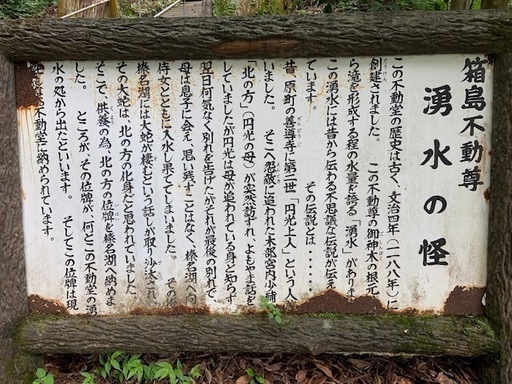 箱島不動尊
湧水の怪
この不動堂の歴史は古く、文治四年(一一八八年)に
創建されました。 この不動尊の御神木の根元
ら滝を形成する程の水量を誇る「湧水」があります
この湧水には昔から伝わる不思議な伝説が伝え
ています。 その伝説とは・・・・・
昔原町の善導寺に第二世「円光上人」という人
いました。 そこへ怨敵に追われた木部宮内少輔
「北の方」(円光の母)が突然訪ずれ、よもやま話を
していましたが円光は母が追われている身と知らず
翌日何気なく別れを告げたがそれが最後の別れで、
母は息子に会え、思い残すことはなく、榛名湖へ向
侍女とともに入水し果ててしまいました。 その後
榛名湖には大蛇が棲むという話しが取り沙汰され
その大蛇は、北の方の化身だと思われていました。
そこで、供養の為、北の方の位牌を榛名湖へ納めま
した。 ところが、その位牌が、何とこの不動堂の湧
水の処から出たといいます。 そしてこの位牌は現
不動堂に納められています。